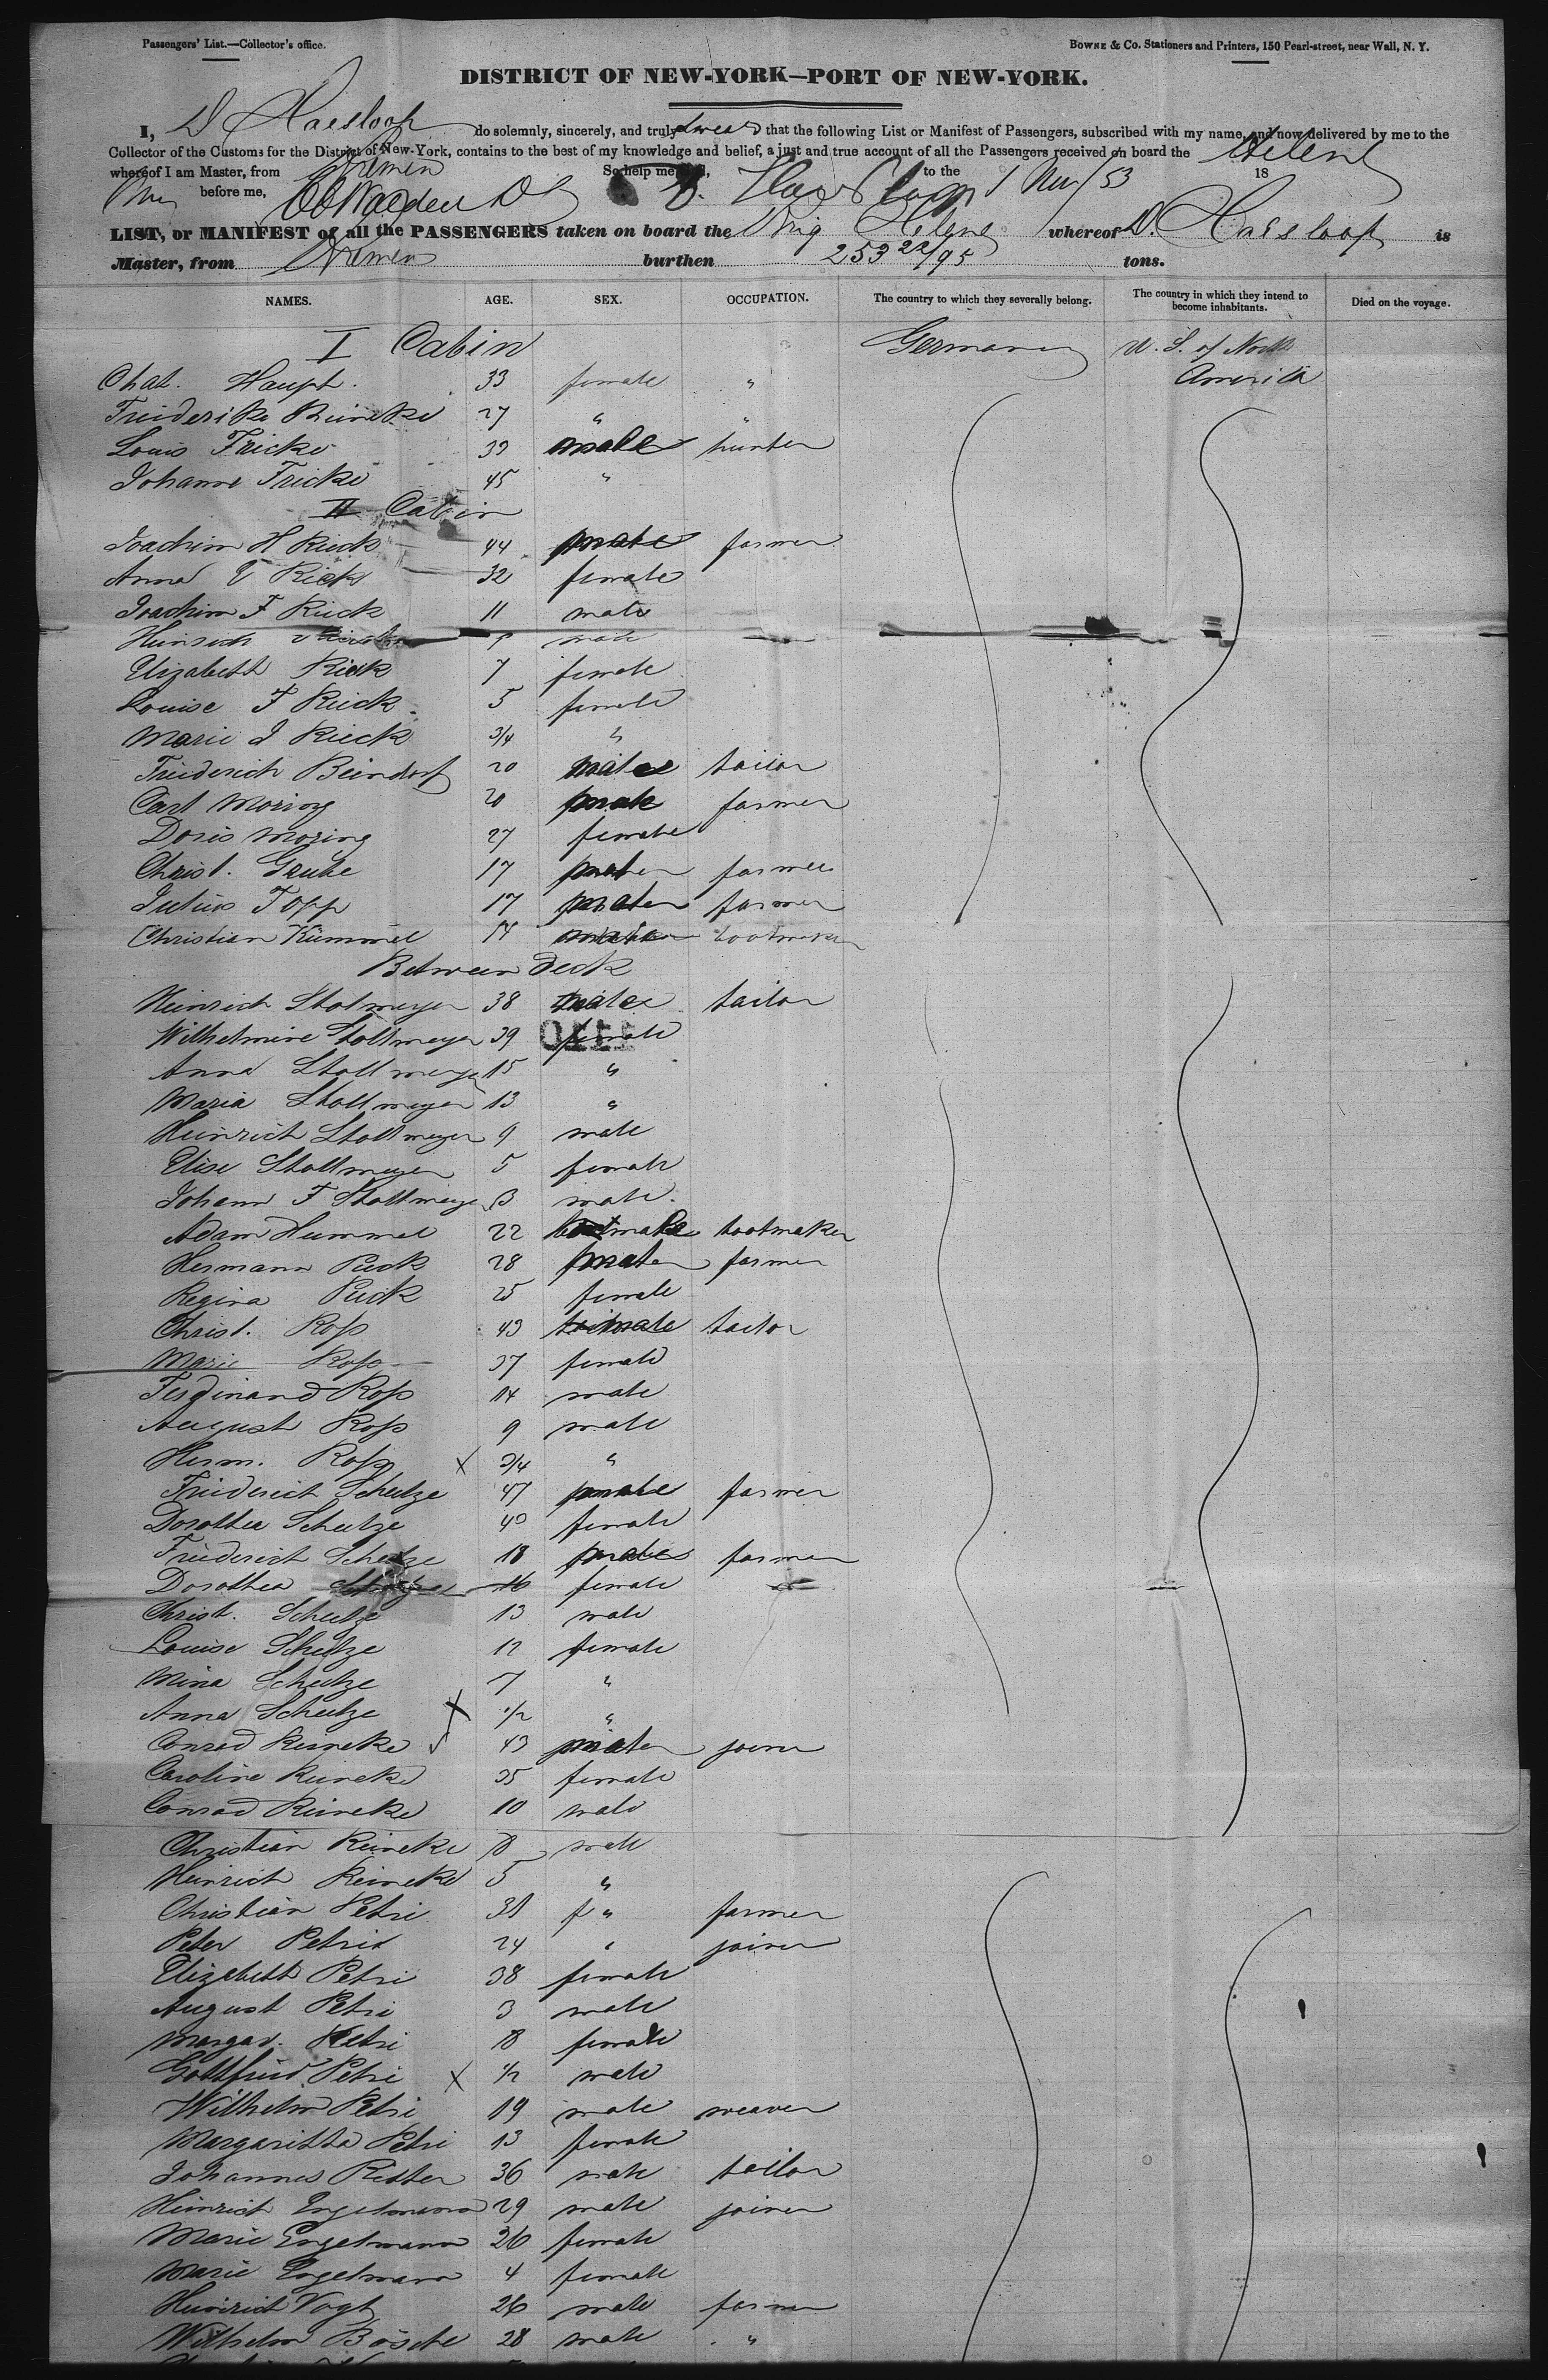 Passengers' List.—Collector's office.
BOWNE & Co. Stationers and Printers, 150 Pearl-street, near Wall, N. Y.
DISTRICT OF NEW-YORK—PORT OF NEW-YORK.
I, D Haesloop do solemnly, sincerely, and truly swear that the following List or Manifest of Passengers, subscribed with my name, and now delivered by me to the
Collector of the Customs for the District of New-York, contains to the best of my knowledge and belief, a just and true account of all the Passengers received on board the Helene
whereof I am Master, from Bremen So help me God, to the 18
before me, D. Haesloop 1 /53
LIST, or MANIFEST of all the PASSENGERS taken on board the Brig Helene whereof D. Haesloop is
Master, from Bremen burthen 253 22/95 tons.
NAMES. AGE. SEX. OCCUPATION. The country to which they severally belong. The country in which they intend to become inhabitants. Died on the voyage.
I Cabin Germany U. S. of North
Chat. Haupt. 33 female " America
Friederike Reineke 27 " "
Louis Fricke 39 male hunter
Johanne Fricke 45 "
II Cabin
Joachim H Rieck 44 male farmer
Anna Rieck 32 female
Joachim F Rieck 11 male
Heinrich male
Elizabeth Rieck 7 female
Louise F Rieck 5 female
Marie J Rieck 3/4 "
Friederich Beindorf 20 male tailor
Carl Moring 20 male farmer
Doris Moring 27 female
Christ. Grube 17 male farmer
Julius Topp 17 male farmer
Christian Kümmel 17 male bootmaker
Between deck
Heinrich Stolmeyer 38 male tailor
Wilhelmine Stollmeyer 39 female
Anna Stollmeyer 15 "
Maria Stollmeyer 13 "
Heinrich Stollmeyer 9 male
Elise Stollmeyer 5 female
Johann F Stollmeyer 3 male
Adam Hummel 22 male bootmaker
Hermann Pieck 28 male farmer
Regina Pieck 25 female
Christ. Roſs 43 male tailor
Marie Roſs 37 female
Ferdinand Roſs 14 male
August Roſs 9 male
Herm. Roſs X 3/4 "
Friederich Schulze 47 male farmer
Dorothea Schulze 40 female
Friederich Schulze 18 male farmer
Dorothea Schulze 16 female
Christ. Schulze 13 male
Louise Schulze 12 female
Mina Schulze 7 "
Anna Schulze X 1/2 "
Conrad Reineke 43 male joiner
Caroline Reineke 35 female
Conrad Reineke 10 male
Christian Reineke 8 male
Heinrich Reineke 5 "
Christian Petri 31 " farmer
Peter Petri 24 " joiner
Elizabeth Petri 38 female
August Petri 3 male
Margar. Petri 8 female
Gottfried Petri X 1/2 male
Wilhelm Petri 19 male weaver
Margaritta Petri 13 female
Johannes Ritter 36 male tailor
Heinrich Engelmann 29 male joiner
Marie Engelmann 26 female
Marie Engelmann 4 female
Heinrich Vogt 26 male farmer
Wilhelm Bösche 28 male "